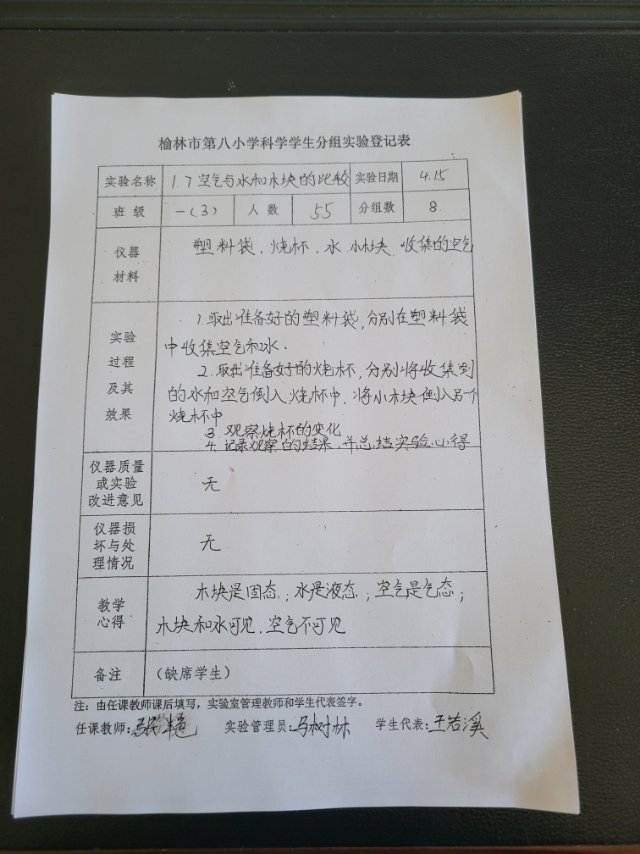 榆林市第八小学科学学生分组实验登记表
实验名称 1.7空气与水和木块的比较 实验日期 4.15
班 级 一(3) 人 数 55 分组数 8
仪器
材料
塑料袋、烧杯、水、小木块、收集的空气
实验
过程
及其
效果
1.取出准备好的塑料袋,分别在塑料袋
中收集空气和水.
2.取出准备好的烧杯,分别将收集到
的水和空气倒入烧杯中,将小木块倒入另一个
烧杯中
3 观察烧杯的变化
4.记录观察的结果,并总结实验心得
仪器质量
或实验
改进意见
无
仪器损
坏与处
理情况
无
教学
心得
木块是固态;水是液态;空气是气态;
木块和水可见,空气不可见
备注 (缺席学生)
注:由任课教师课后填写,实验室管理教师和学生代表签字。
任课教师: 张 实验管理员:马树林 学生代表:王若溪